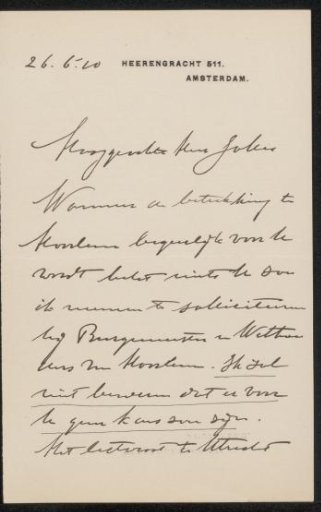 26.6.10 HEERENGRACHT 511.
AMSTERDAM.
Hooggeachte Heer
Wanneer de betrekking te
Haarlem begeerlijk voor U
wordt belet niets U om
te solliciteeren
bij Burgemeester en Wethou
ders van Haarlem. Ik zal
niet beweren dat er voor
U geen kans zou zijn.
Het te Utrecht